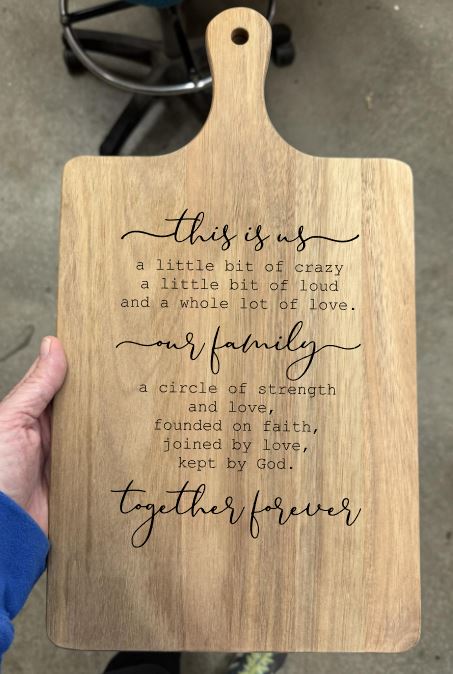 this is us
a little bit of crazy
a little bit of loud
and a whole lot of love.
our family
a circle of strength
and love,
founded on faith,
joined by love,
kept by God.
together forever